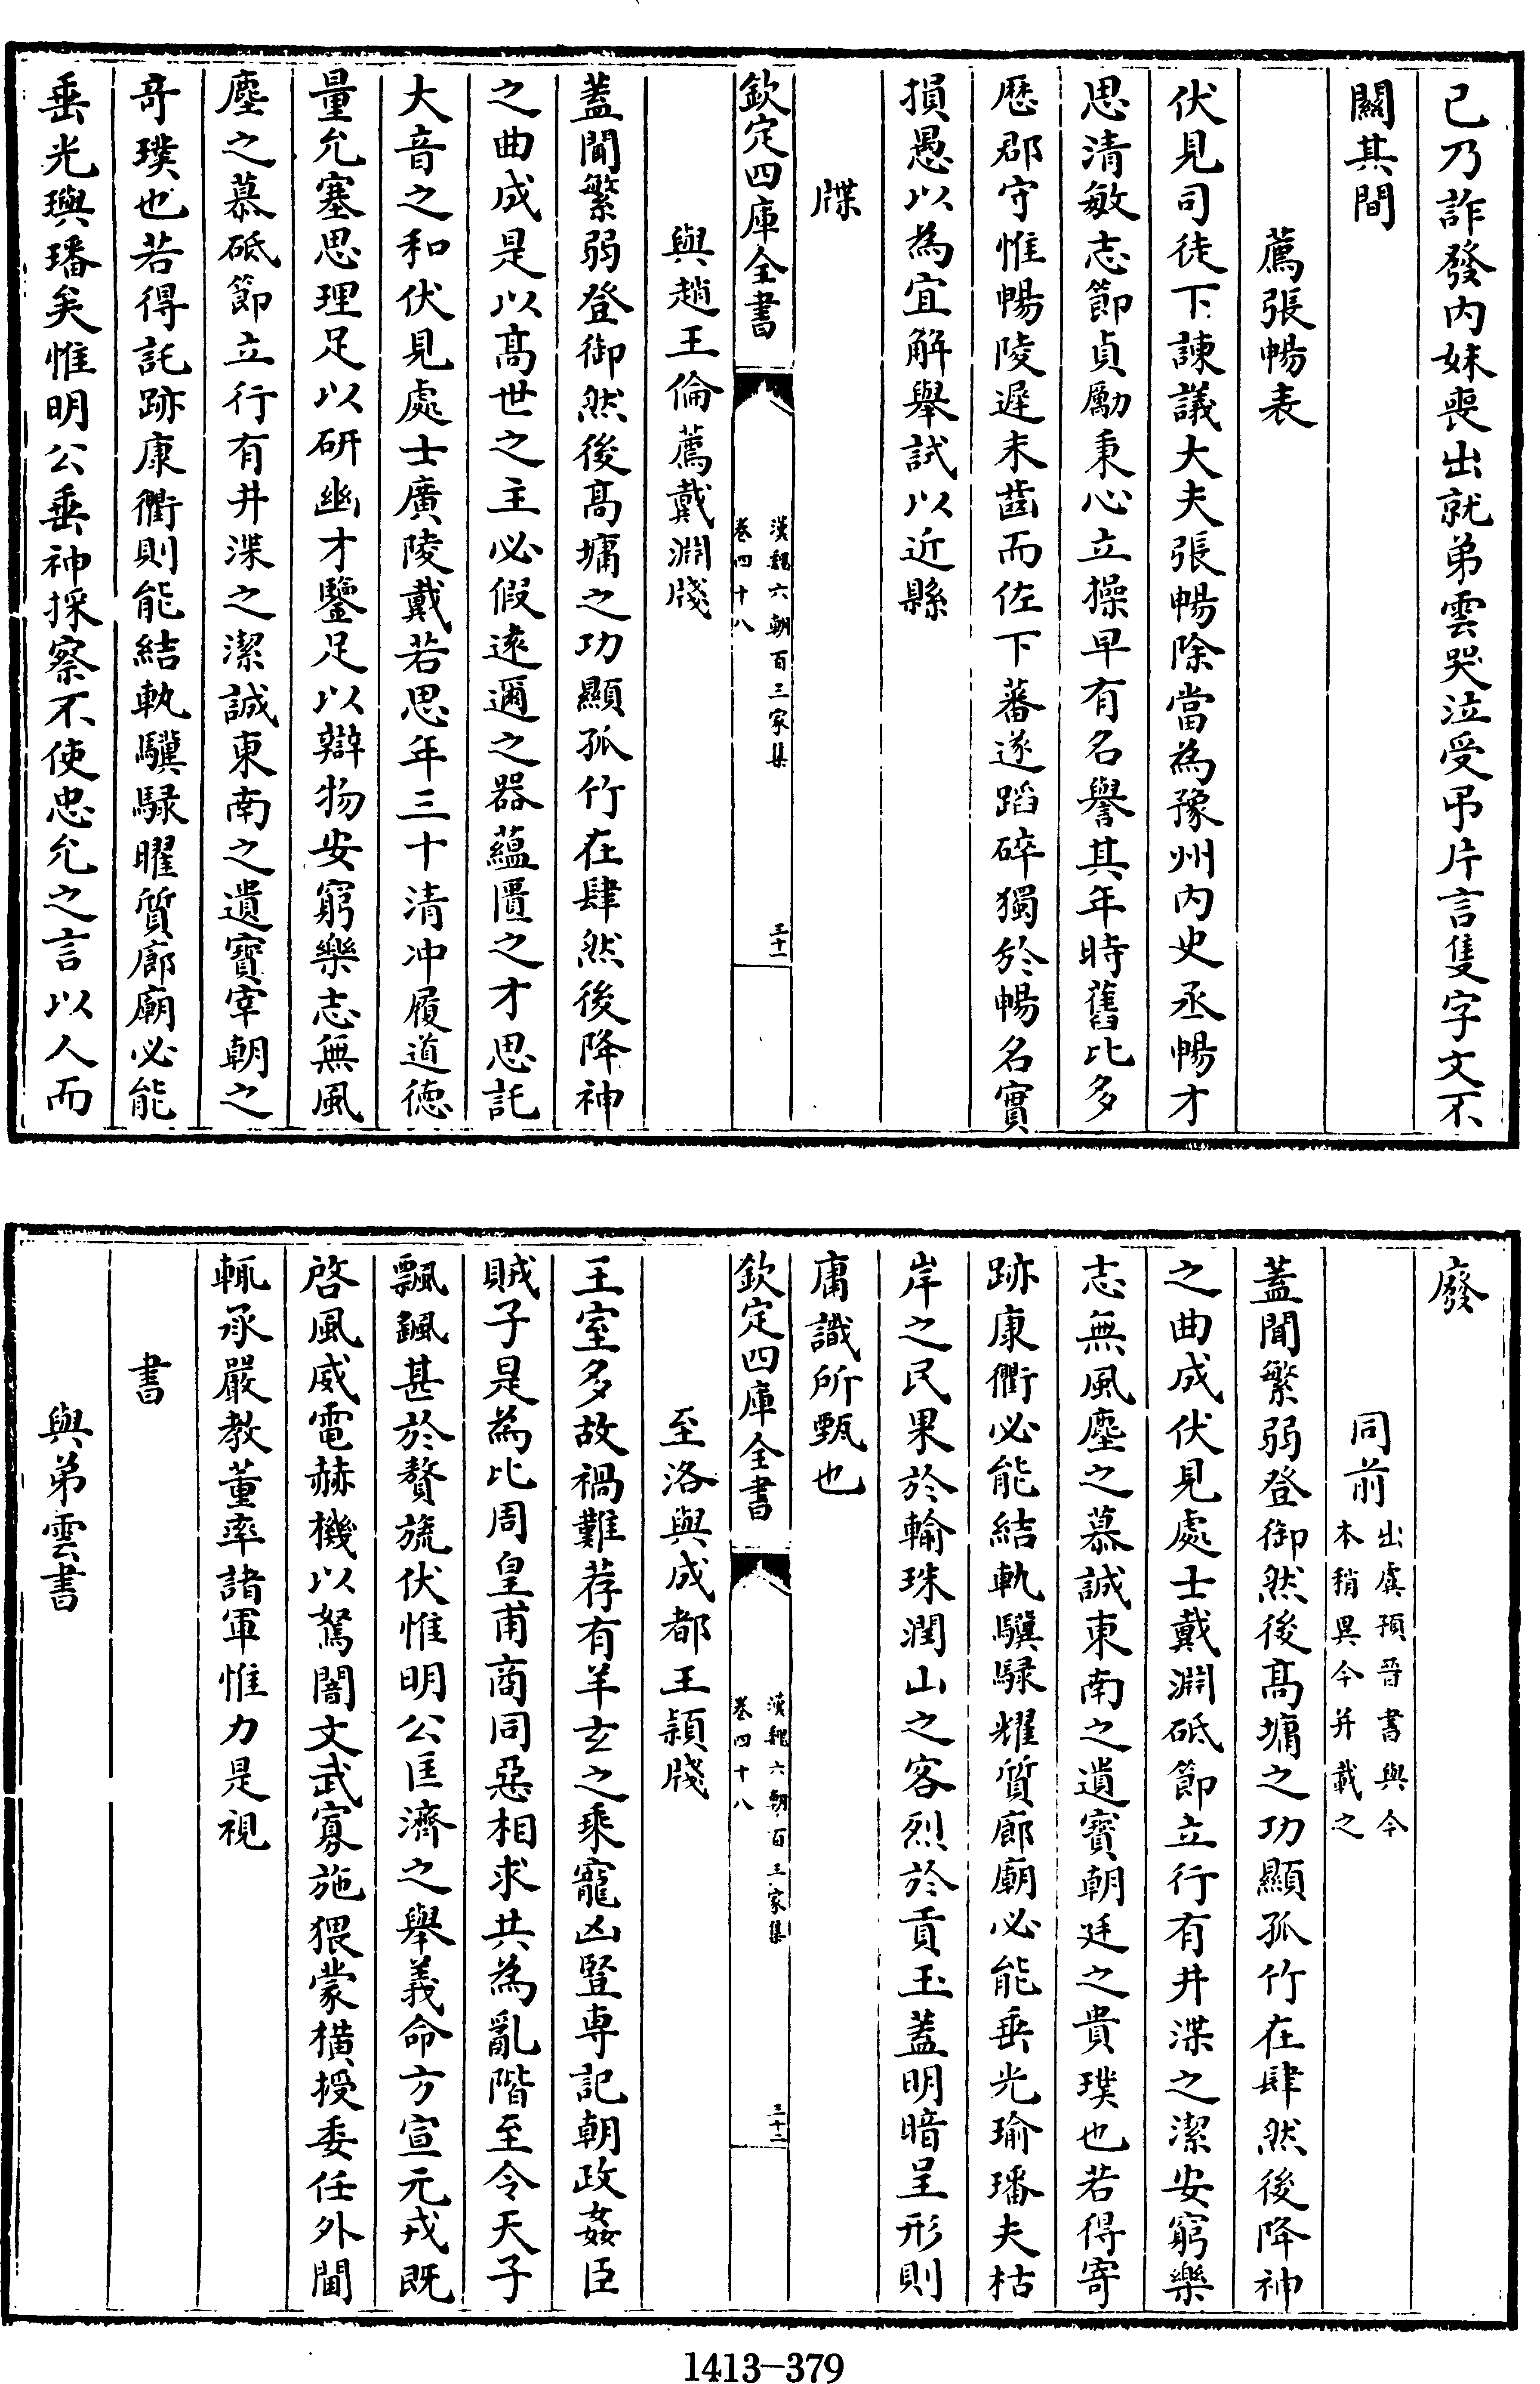 已乃詐發内妹喪出就弟雲哭泣受弔片言隻字文不
關其間
薦張暢表
伏見司徒下諫議大夫張暢除當為豫州内史丞暢才
思清敏志節貞勵秉心立操早有名譽其年時舊比多
歷郡守惟暢陵遲未齒而佐下蕃遂蹈碎獨於暢名實
損愚以為宜解舉試以近縣
牒
欽定四庫全書
漢魏六朝百三家集
卷四十八
三十一
與趙王倫薦戴淵牋
蓋聞繁弱登御然後髙墉之功顯孤竹在肆然後降神
之曲成是以髙世之主必假遠邇之器蘊匱之才思託
大音之和伏見處士廣陵戴若思年三十清冲履道徳
量允塞思理足以研幽才鑒足以辯物安窮樂志無風
塵之慕砥節立行有井渫之潔誠東南之遺寶宰朝之
奇璞也若得託跡康衢則能結軌驥騄曜質廊廟必能
垂光璵璠矣惟明公垂神採察不使忠允之言以人而
廢
同前
出虞預晉書與今
本稍異今并載之
蓋聞繁弱登御然後髙墉之功顯孤竹在肆然後降神
之曲成伏見處士戴淵砥節立行有井渫之潔安窮樂
志無風塵之慕誠東南之遺寶朝廷之貴璞也若得寄
跡康衢必能結軌驥騄耀質廊廟必能垂光瑜璠夫枯
岸之民果於輸珠潤山之客烈於貢玉蓋明暗呈形則
庸識所甄也
欽定四庫全書
漢魏六朝百三家集
卷四十八
三十二
至洛與成都王穎牋
王室多故禍難荐有羊玄之乘寵凶豎専記朝政姦臣
賊子是為比周皇甫商同惡相求共為亂階至令天子
飄颻甚於贅旒伏惟明公匡濟之舉義命方宣元戎既
啓風威電赫機以駑闇文武寡施猥蒙横授委任外閫
輒承嚴教董率諸軍惟力是視
書
與弟雲書
1413-379